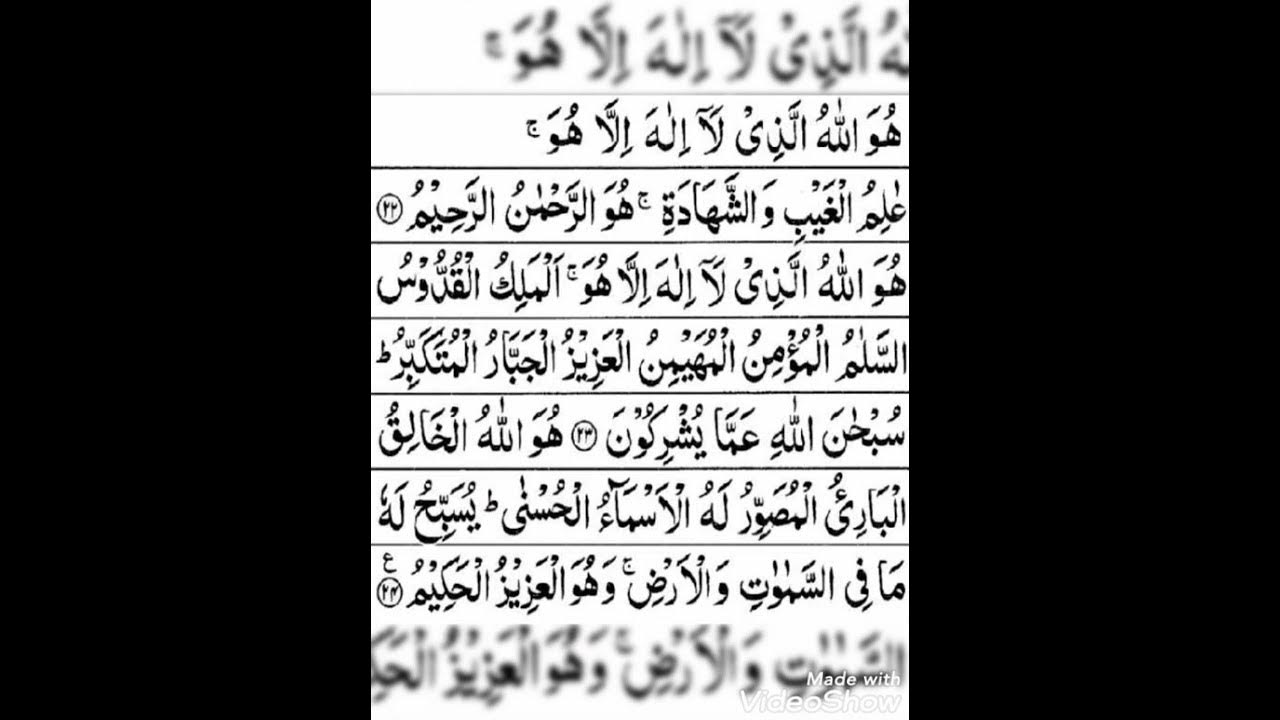 هُ الَّذِیْ لَآ اِلٰهَ اِلَّا هُوَ ۚ
هُوَ اللّٰهُ الَّذِیْ لَآ اِلٰهَ اِلَّا هُوَ ۚ
عٰلِمُ الْغَیْبِ وَالشَّهَادَةِ ۚ هُوَ الرَّحْمٰنُ الرَّحِیْمُ ﴿۲۲﴾
هُوَ اللّٰهُ الَّذِیْ لَآ اِلٰهَ اِلَّا هُوَ ۚ اَلْمَلِكُ الْقُدُّوْسُ
السَّلٰمُ الْمُؤْمِنُ الْمُهَیْمِنُ الْعَزِیْزُ الْجَبَّارُ الْمُتَكَبِّرُ ؕ
سُبْحٰنَ اللّٰهِ عَمَّا یُشْرِكُوْنَ ﴿۲۳﴾ هُوَ اللّٰهُ الْخَالِقُ
الْبَارِئُ الْمُصَوِّرُ لَهُ الْاَسْمَآءُ الْحُسْنٰی ؕ یُسَبِّحُ لَهٗ
مَا فِی السَّمٰوٰتِ وَالْاَرْضِ ۚ وَهُوَ الْعَزِیْزُ الْحَكِیْمُ ﴿۲۴﴾ ع
السَّمٰوٰتِ وَالْاَرْضِ ۚ وَهُوَ الْعَزِیْزُ الْحَكِ
Made with
VideoShow